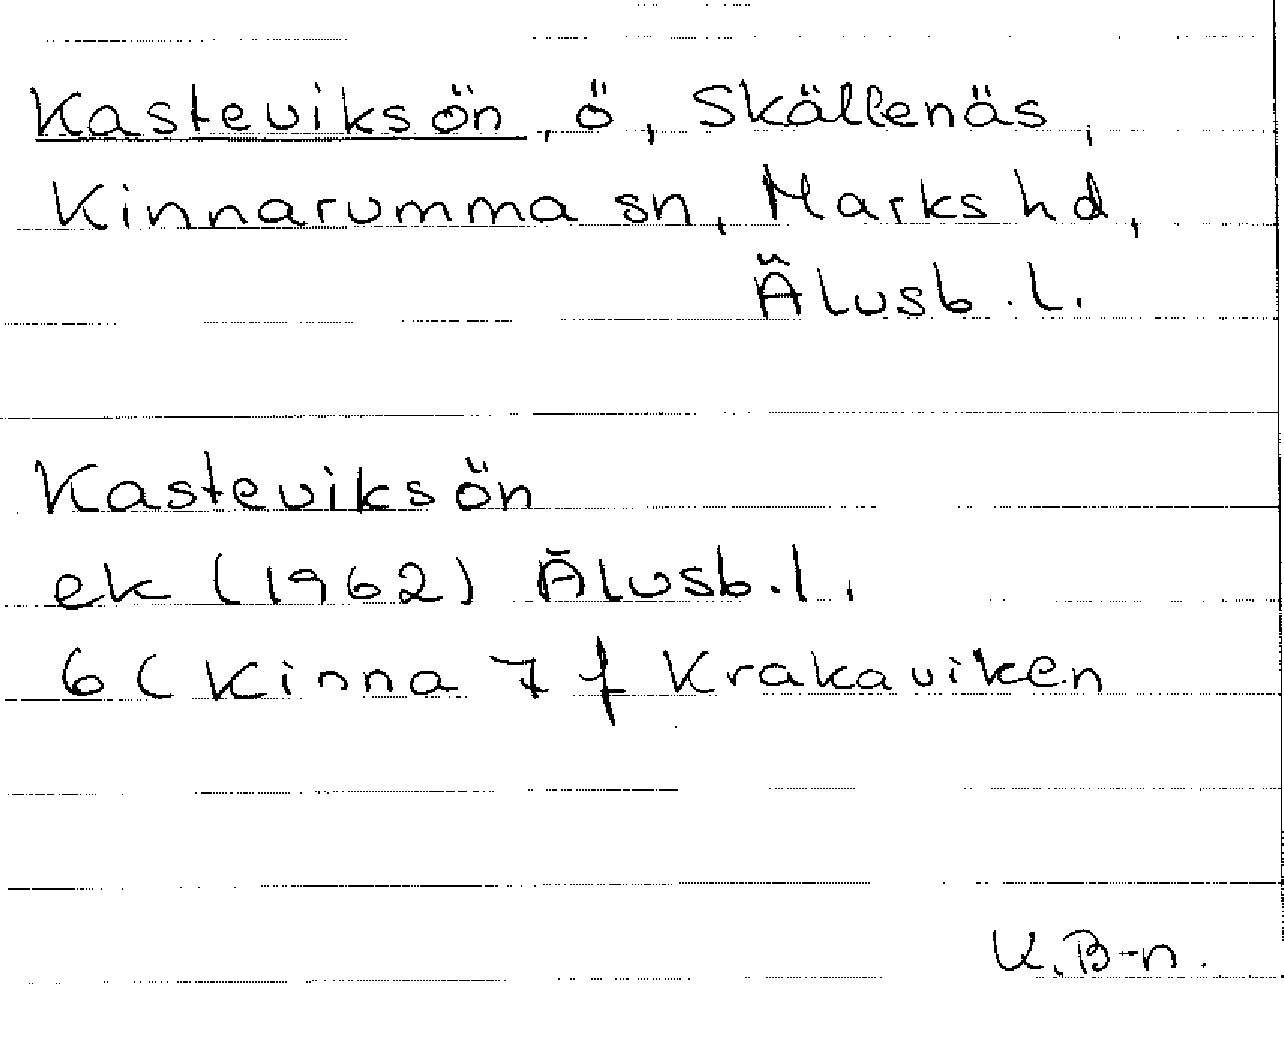 Kasteviksön, ö, Skällenäs,
Kinnarumma sn, Marks hd,
Älvsb. l.
Kasteviksön
ek (1962) Älvsb. l.
6C Kinna 7 f Krakaviken
K.B-n.